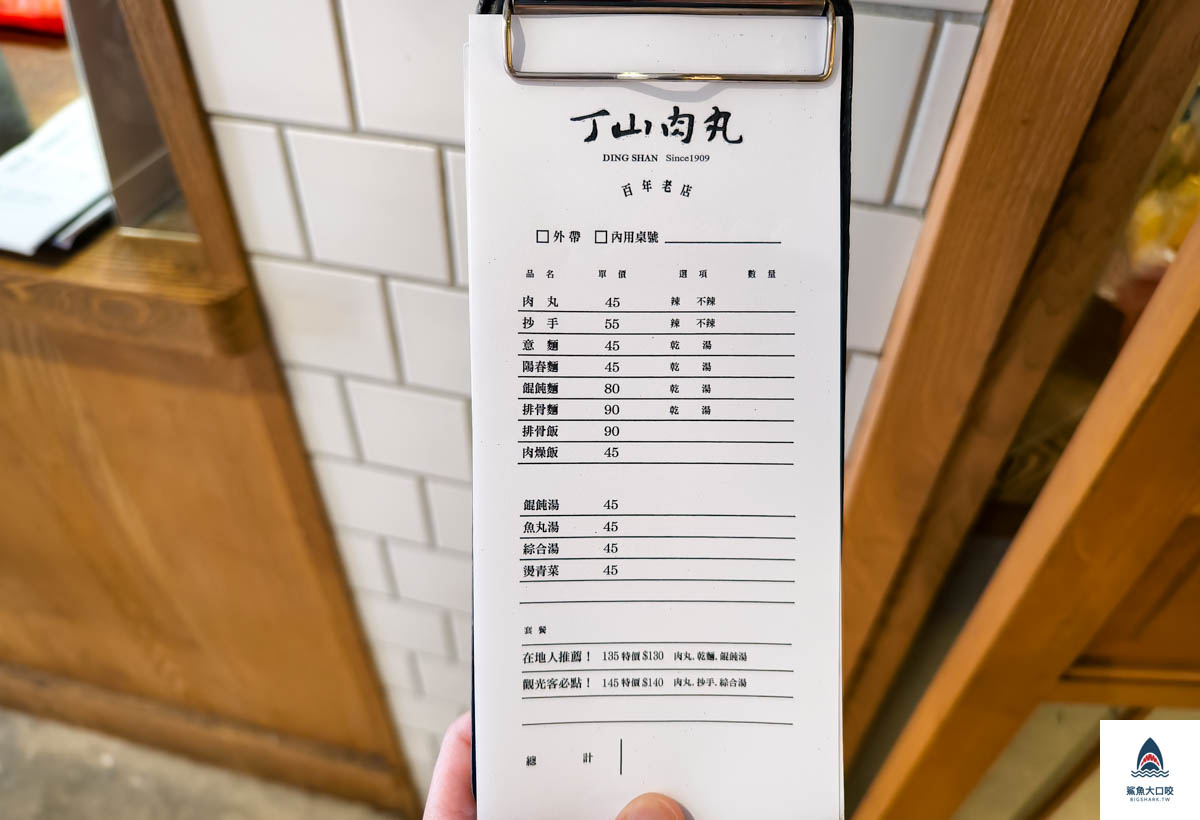 丁山肉丸
DING SHAN Since1909
百年老店
□外帶 □內用桌號
品名 單價 選項 數量
肉丸 45 辣 不辣
抄手 55 辣 不辣
意麵 45 乾 湯
陽春麵 45 乾 湯
餛飩麵 80 乾 湯
排骨麵 90 乾 湯
排骨飯 90
肉燥飯 45
餛飩湯 45
魚丸湯 45
綜合湯 45
燙青菜 45
套餐
在地人推薦！ 135 特價 $130 肉丸. 乾麵. 餛飩湯
觀光客必點！ 145 特價 $140 肉丸. 抄手. 綜合湯
總計
鯊魚大口咬
BIGSHARK.TW